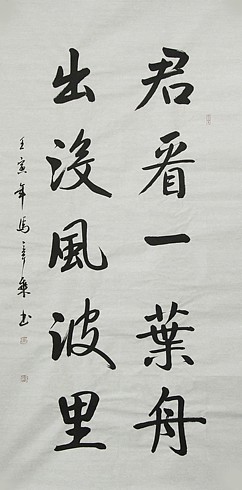 君看一葉舟
出没風波里
壬寅年馬
書